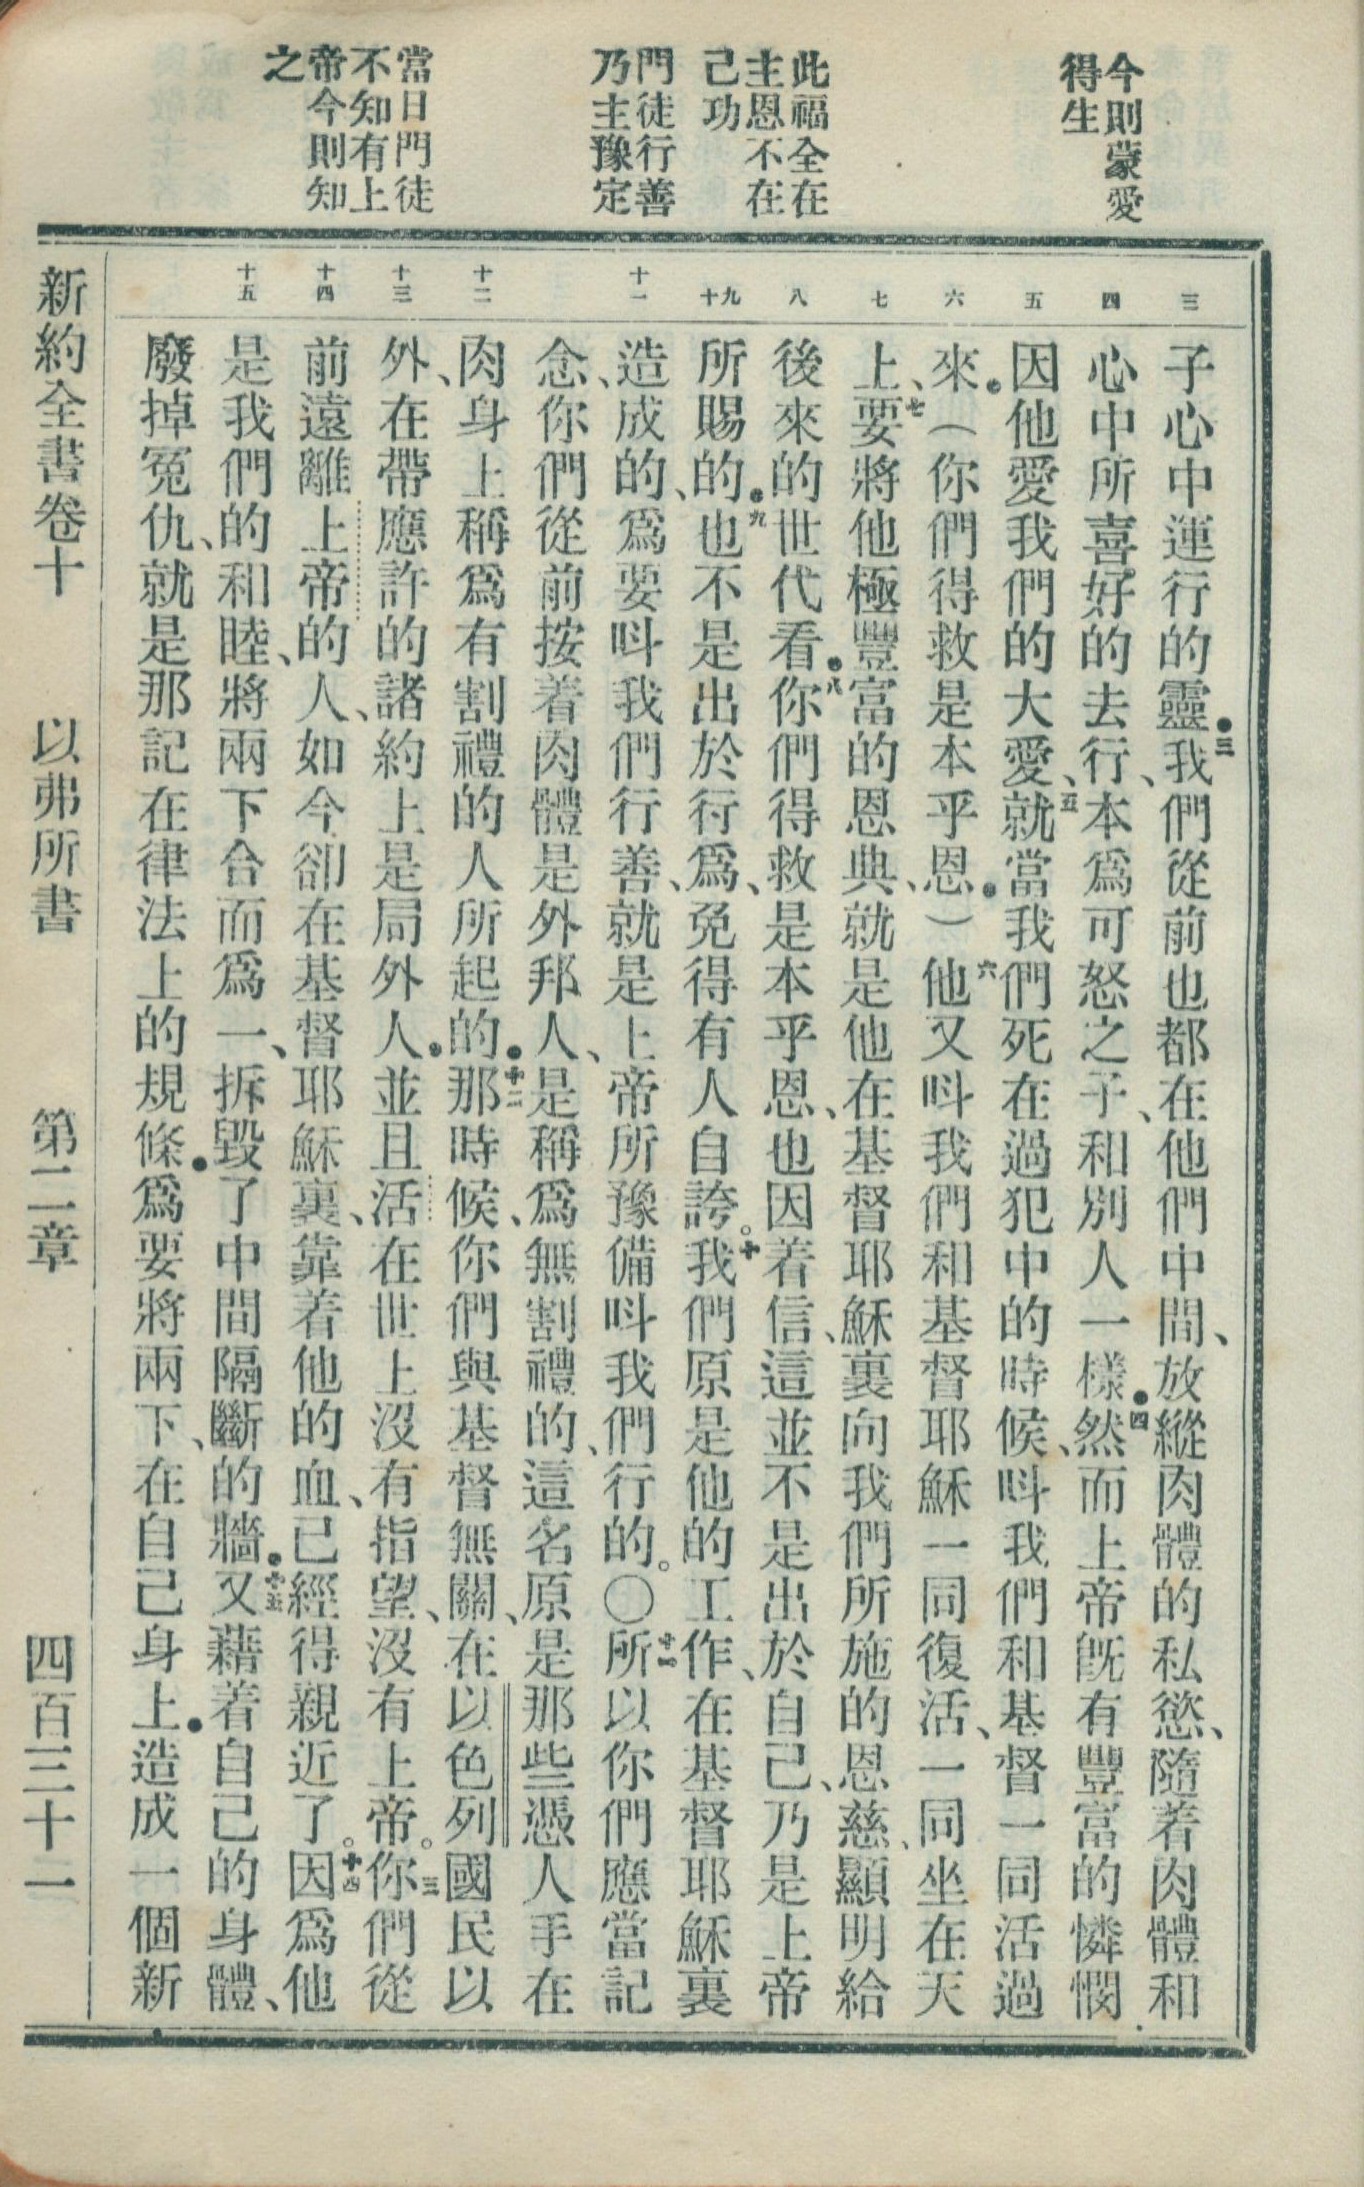 今則蒙愛
得生
此福全在
主恩不在
己功
門徒行善
乃主豫定
當日門徒
不知有上
帝今則知
之
三
四
五
六
七
八
九
十
十一
十二
十三
十四
十五
子心中運行的靈●三我們從前也都在他們中間、放縱肉體的私慾、隨着肉體和
心中所喜好的去行、本爲可怒之子、和別人一樣●四然而上帝旣有豐富的憐憫
因他愛我們的大愛、五就當我們死在過犯中的時候、呌我們和基督一同活過
來●（你們得救是本乎恩●）六他又呌我們和基督耶穌一同復活、一同坐在天
上、七要將他極豐富的恩典、就是他在基督耶穌裏向我們所施的恩慈、顯明給
後來的世代看●八你們得救是本乎恩、也因着信、這並不是出於自己、乃是上帝
所賜的●九也不是出於行爲、免得有人自誇。十我們原是他的工作、在基督耶穌裏
造成的、爲要呌我們行善、就是上帝所豫備呌我們行的。〇十一所以你們應當記
念、你們從前按着肉體是外邦人、是稱爲無割禮的、這名原是那些憑人手在
肉身上稱爲有割禮的人所起的●十二那時候、你們與基督無關、在以色列國民以
外、在帶應許的諸約上是局外人●並且活在世上沒有指望、沒有上帝。三你們從
前遠離上帝的人、如今卻在基督耶穌裏、靠着他的血、已經得親近了。十四因爲他
是我們的和睦、將兩下合而爲一、拆毀了中間隔斷的牆●十五又藉着自己的身體、
廢掉冤仇、就是那記在律法上的規條●爲要將兩下、在自己身上●造成一個新
新約全書卷十 以弗所書 第二章 四百三十二